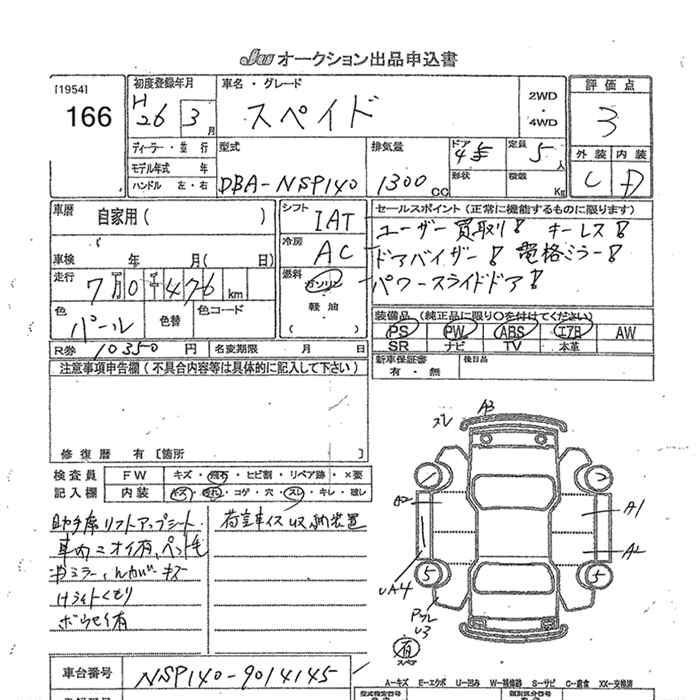 JU オークション出品申込書
[1954]
166
初度登録年月
H26 3月
車名・グレード
スペイド
2WD
・
4WD
評価点
3
外装 内装
C D
ディーラー・並行
モデル年式 年
ハンドル 左・右
型式
DBA-NSP140
排気量
1300 CC
ドア
形状
定員
5人
積載
Kg
車歴
自家用( )
車検 年 月( 日)
走行
km
シフト
IAT
冷房
AC
燃料
ガソリン
・
軽油
( )
セールスポイント(正常に機能するものに限ります)
ユーザー買取り! キーレス!
ドアバイザー! 電格ミラー!
パワースライドドア!
色
パール
色替
色コード
装備品(純正品に限り〇を付けてください)
PS PW ABS エアB AW
SR ナビ TV 本革
R券 10350 円
名変期限 月 日
新車保証書
有・無
後日品
注意事項申告欄(不具合内容等は具体的に記入して下さい)
修復歴 有[箇所 ]
検査員
記入欄
FW キズ・飛石・ヒビ割・リペア跡・×要
内装 キズ・汚れ・コゲ・穴・スレ・キレ・破レ
助手席リフトアップシート.
車内ニオイ有、ペット毛
Hライトくもり
荷室車イス収納装置
スレ A3
A2
A1
A2
UA4
5
5
U3
有
スペア
車台番号
NSP140-9014145
A=キズ E=エクボ U=凹み W=補修跡 S=サビ C=腐食 XX=交換済
型式指定番号
類別区分番号